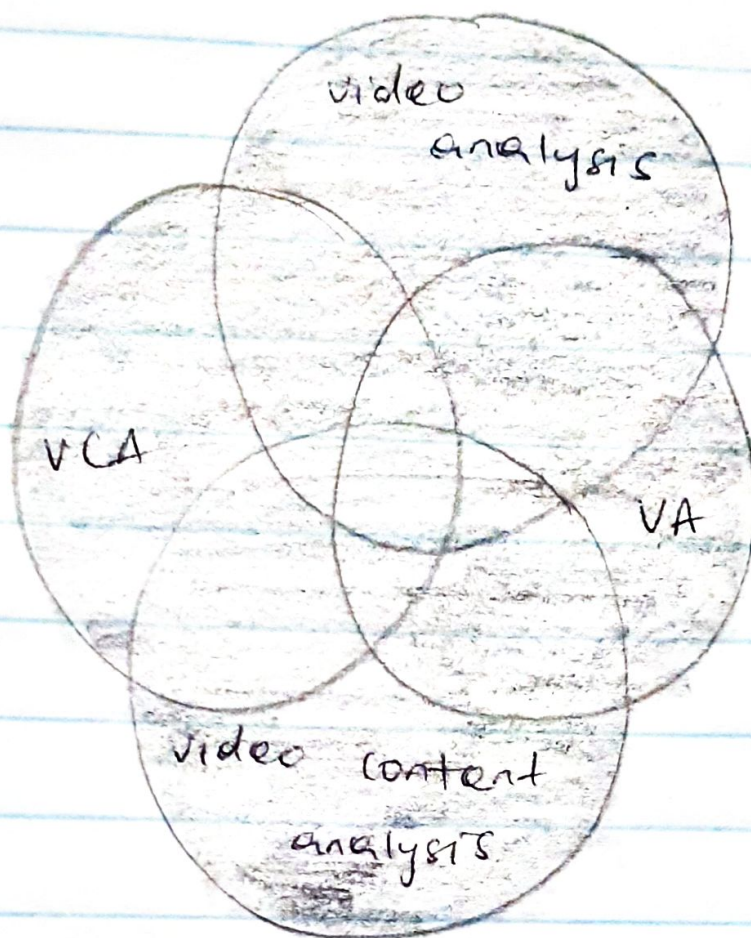 video
analysis
VCA
VA
video content
analysis